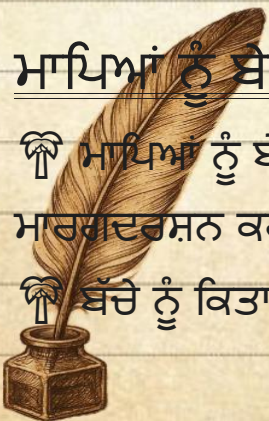 ਮਾਪਿਆਂ ਨੂੰ ਬੇ
ਮਾਪਿਆਂ ਨੂੰ ਬੱ
ਮਾਰਗਦਰਸ਼ਨ ਕਰ
ਬੱਚੇ ਨੂੰ ਕਿਤਾ